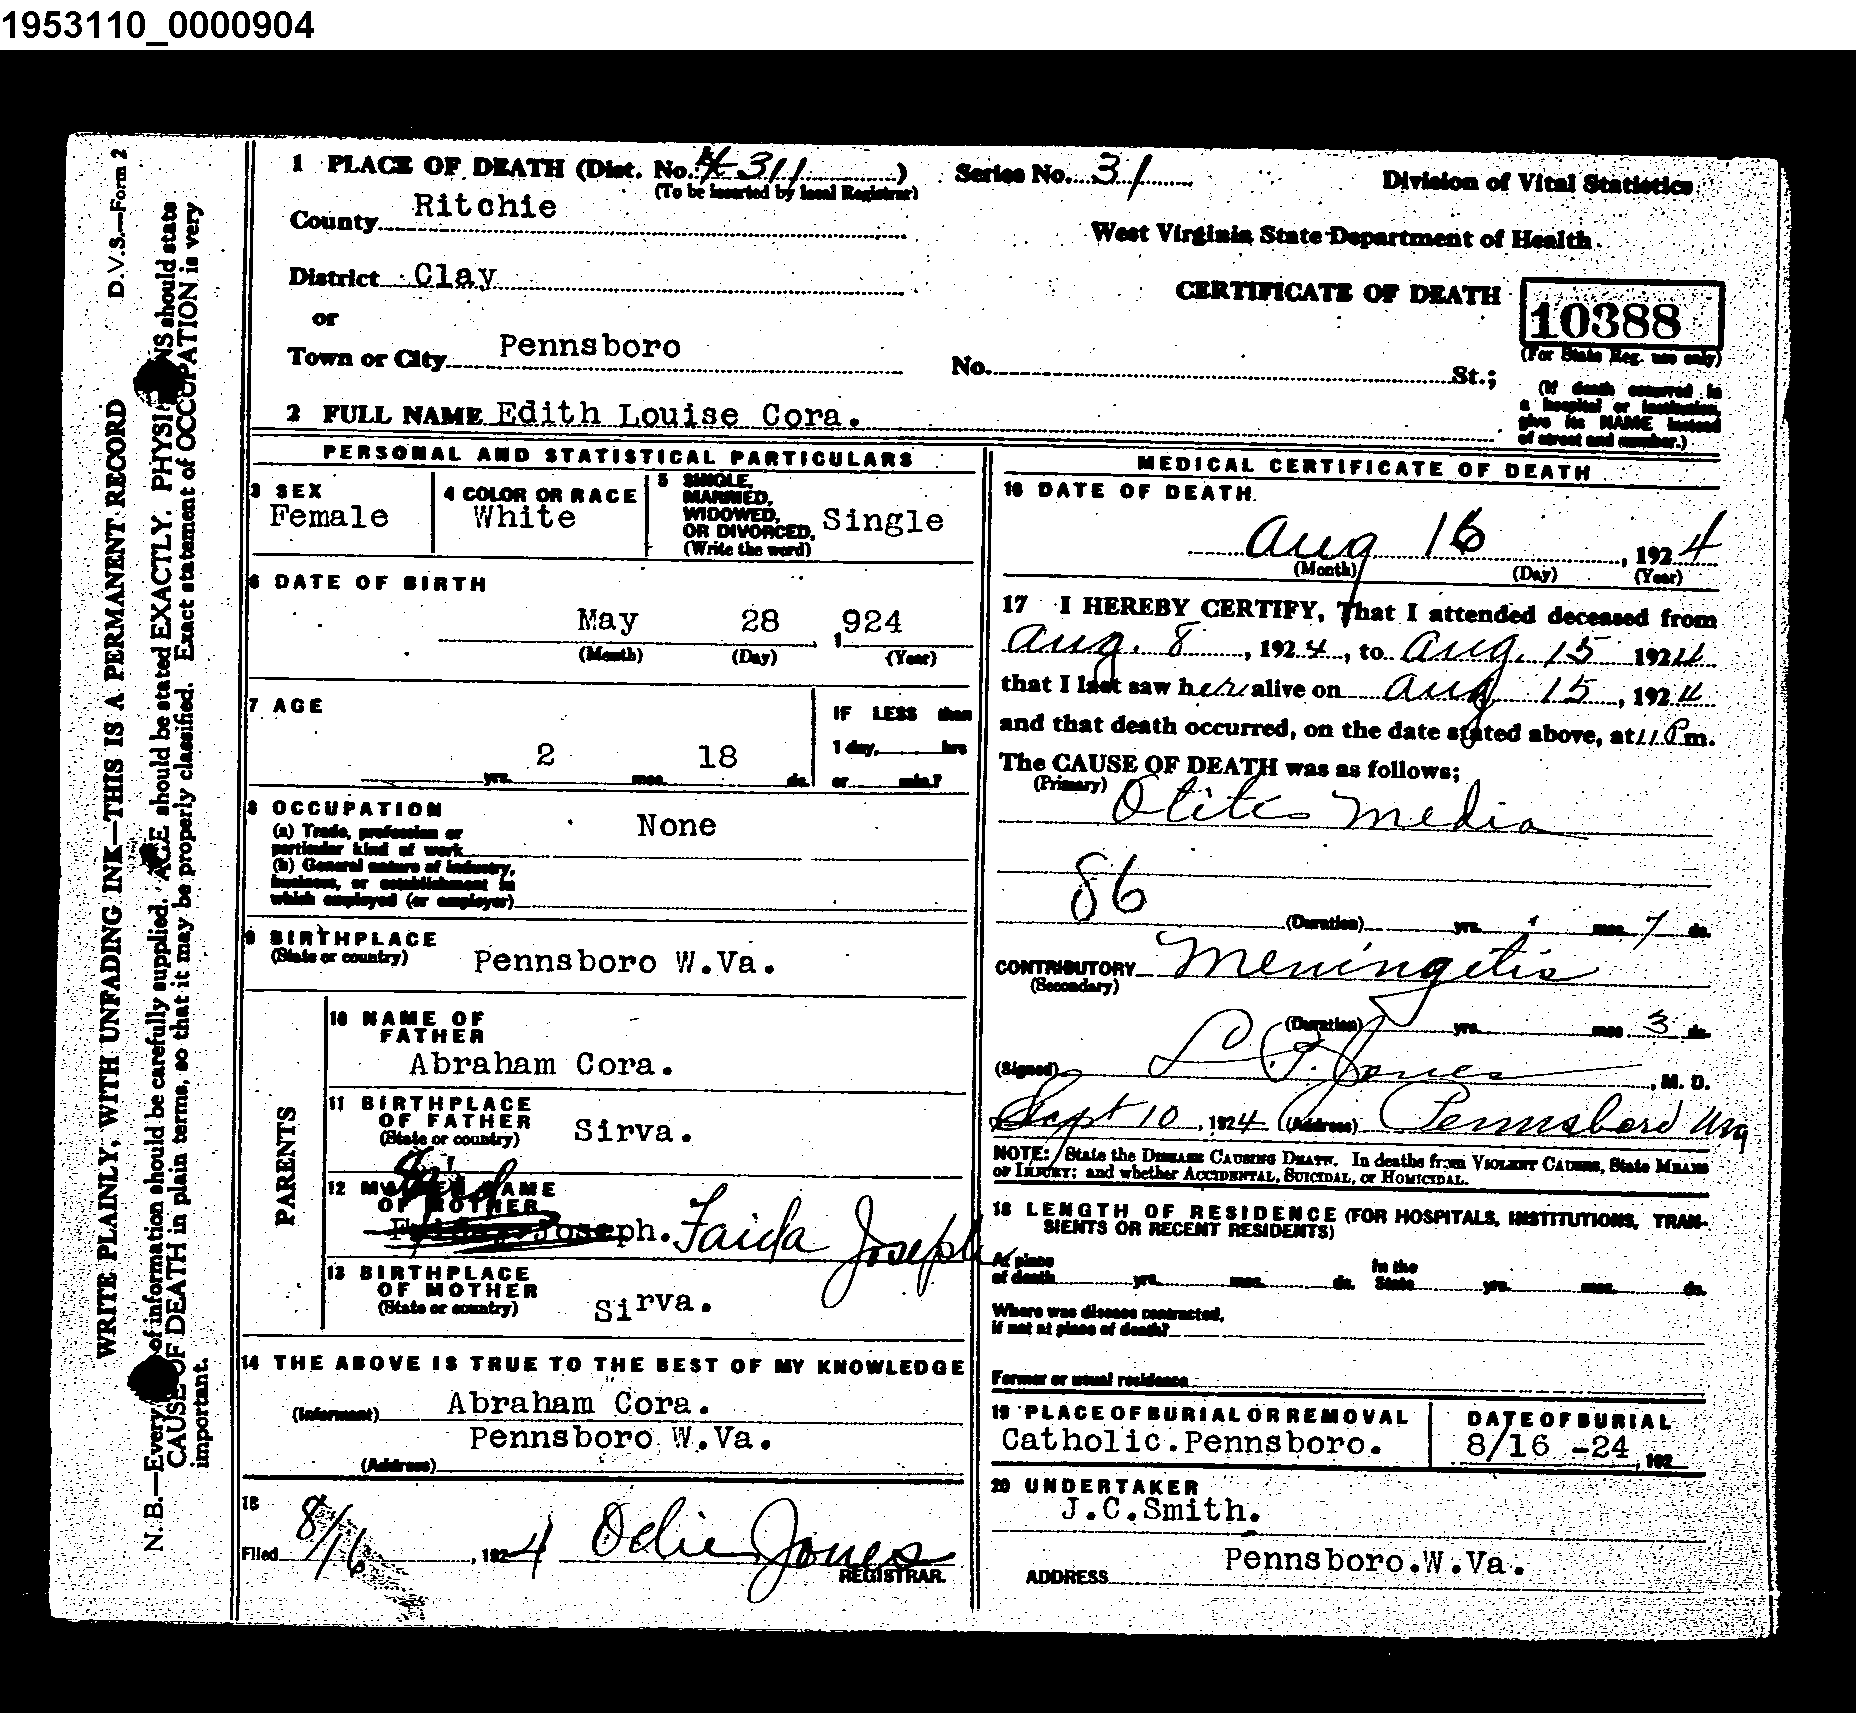 1953110_0000904
D.V.S.—Form 2
WRITE PLAINLY, WITH UNFADING INK—THIS IS A PERMANENT RECORD
N. B.—Every of information should be carefully supplied. AGE should be stated EXACTLY. PHYSI NS should state
CAUSE OF DEATH in plain terms, so that it may be properly classified. Exact statement of OCCUPATION is very
important.
1 PLACE OF DEATH (Dist. No. 4311)
(To be inserted by local Registrar)
Series No. 31
Division of Vital Statistics
County Ritchie
West Virginia State Department of Health
District Clay
CERTIFICATE OF DEATH
10388
(For State Reg. use only)
or
Town or City Pennsboro
No. St.;
(If death occurred in
a hospital or institution,
give its NAME instead
of street and number.)
2 FULL NAME Edith Louise Cora.
PERSONAL AND STATISTICAL PARTICULARS
3 SEX
Female
4 COLOR OR RACE
White
5 SINGLE,
MARRIED,
WIDOWED,
OR DIVORCED,
(Write the word)
Single
6 DATE OF BIRTH
May 28 1924
(Month) (Day) (Year)
7 AGE
2 18
yrs. mos. ds.
IF LESS than
1 day, hrs
or min.?
8 OCCUPATION
(a) Trade, profession or
particular kind of work
None
(b) General nature of industry,
business, or establishment in
which employed (or employer)
9 BIRTHPLACE
(State or country)
Pennsboro W.Va.
PARENTS
10 NAME OF
FATHER
Abraham Cora.
11 BIRTHPLACE
OF FATHER
(State or country)
Sirva.
12 NAME
OF MOTHER
Joseph. Faida Joseph
13 BIRTHPLACE
OF MOTHER
(State or country)
Sirva.
14 THE ABOVE IS TRUE TO THE BEST OF MY KNOWLEDGE
(Informant) Abraham Cora.
Pennsboro W.Va.
(Address)
15
Filed 8/16, 1924 Odie Jones
REGISTRAR.
MEDICAL CERTIFICATE OF DEATH
16 DATE OF DEATH.
Aug 16, 1924
(Month) (Day) (Year)
17 I HEREBY CERTIFY, That I attended deceased from
Aug. 8, 1924, to Aug. 15 1924
that I last saw her alive on Aug 15, 1924
and that death occurred, on the date stated above, at 11 P m.
The CAUSE OF DEATH was as follows;
(Primary) Otitis Media
86
(Duration) yrs. mos. 7 ds.
CONTRIBUTORY Meningitis
(Secondary)
(Duration) yrs. mos 3 ds.
(Signed) L. P. Jones, M. D.
Sept 10, 1924 (Address) Pennsboro W Va
NOTE: State the DISEASE CAUSING DEATH. In deaths from VIOLENT CAUSES, State MEANS
OF INJURY; and whether ACCIDENTAL, SUICIDAL, or HOMICIDAL.
18 LENGTH OF RESIDENCE (FOR HOSPITALS, INSTITUTIONS, TRAN-
SIENTS OR RECENT RESIDENTS)
At place
of death yrs. mos. ds.
In the
State yrs. mos. ds.
Where was disease contracted,
if not at place of death?
Former or usual residence
19 PLACE OF BURIAL OR REMOVAL
Catholic.Pennsboro.
DATE OF BURIAL
8/16 -24, 192
20 UNDERTAKER
J.C.Smith.
ADDRESS Pennsboro.W.Va.